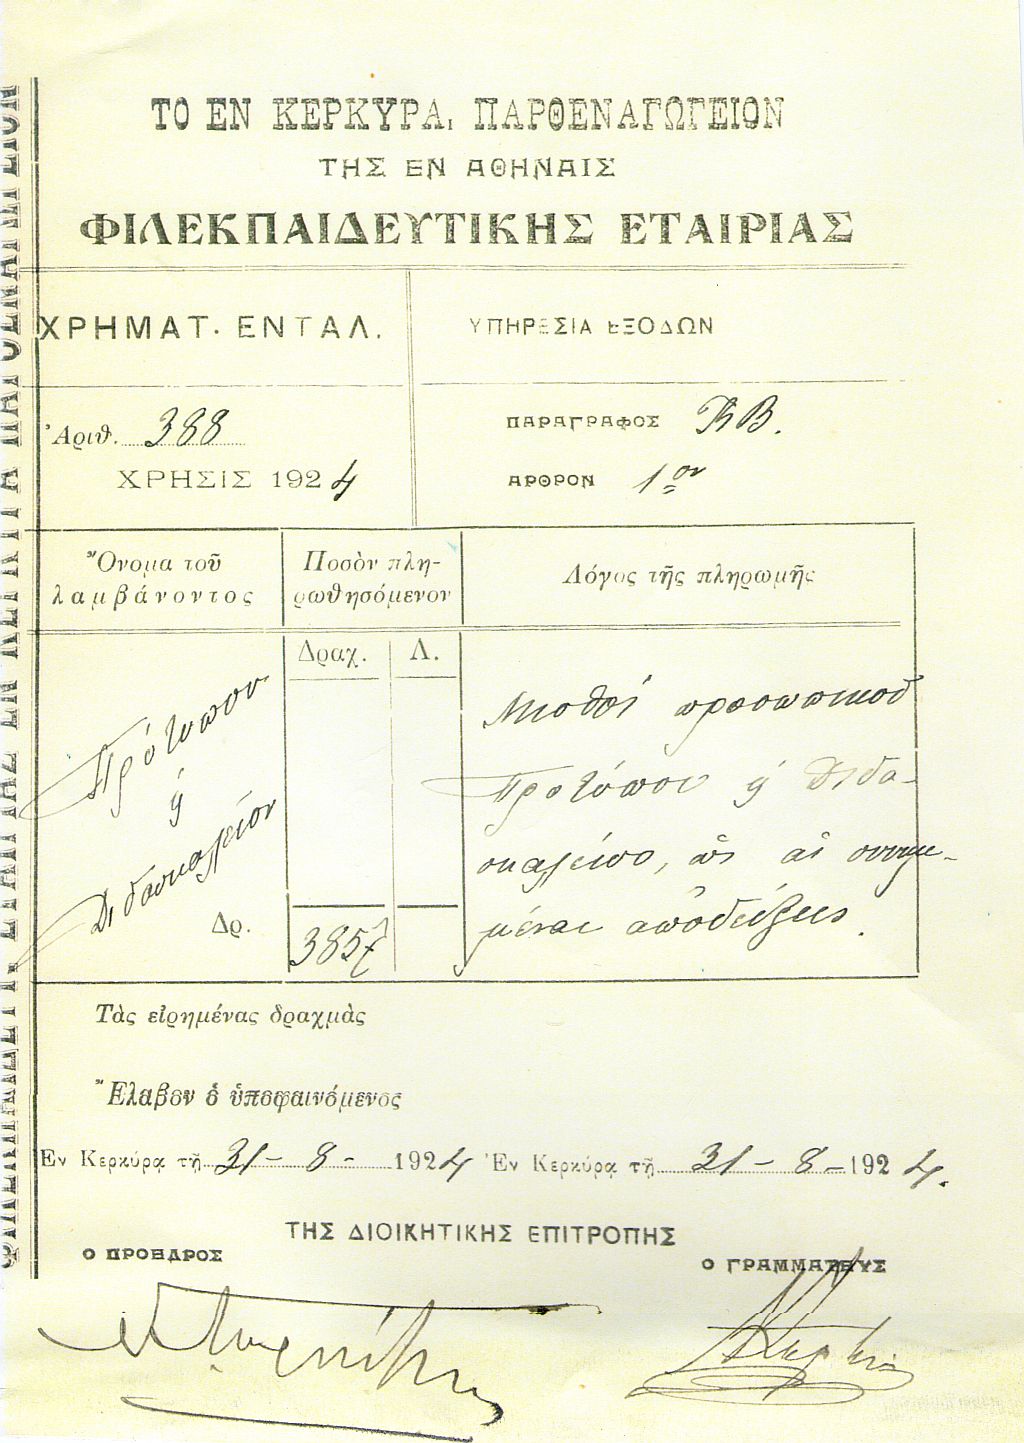 ΤΟ ΕΝ ΚΕΡΚΥΡΑι ΠΑΡΘΕΝΑΓΩΓΕΙΟΝ
ΤΗΣ ΕΝ ΑΘΗΝΑΙΣ
ΦΙΛΕΚΠΑΙΔΕΥΤΙΚΗΣ ΕΤΑΙΡΙΑΣ
ΧΡΗΜΑΤ. ΕΝΤΑΛ.
ΥΠΗΡΕΣΙΑ ΕΞΟΔΩΝ
Ἀριθ. 388
ΧΡΗΣΙΣ 1924
ΠΑΡΑΓΡΑΦΟΣ ΚΒ.
ΑΡΘΡΟΝ 1ον
Ὄνομα τοῦ
λαμβάνοντος
Ποσὸν πλη-
ρωθησόμενον
Λόγος τῆς πληρωμῆς
Δραχ. Λ.
Πρότυπον
ἢ
Διδασκαλεῖον
Μισθοί προσωπικοῦ
Προτύπου ἢ Διδα-
σκαλείου, ὡς αἱ συνημ-
μέναι ἀποδείξεις.
Δρ. 3857
Τὰς εἰρημένας δραχμὰς
Ἔλαβον ὁ ὑποφαινόμενος
Ἐν Κερκύρᾳ τῇ 31-8-1924
Ἐν Κερκύρᾳ τῇ 31-8-1924.
ΤΗΣ ΔΙΟΙΚΗΤΙΚΗΣ ΕΠΙΤΡΟΠΗΣ
Ο ΠΡΟΕΔΡΟΣ
Ο ΓΡΑΜΜΑΤΕΥΣ